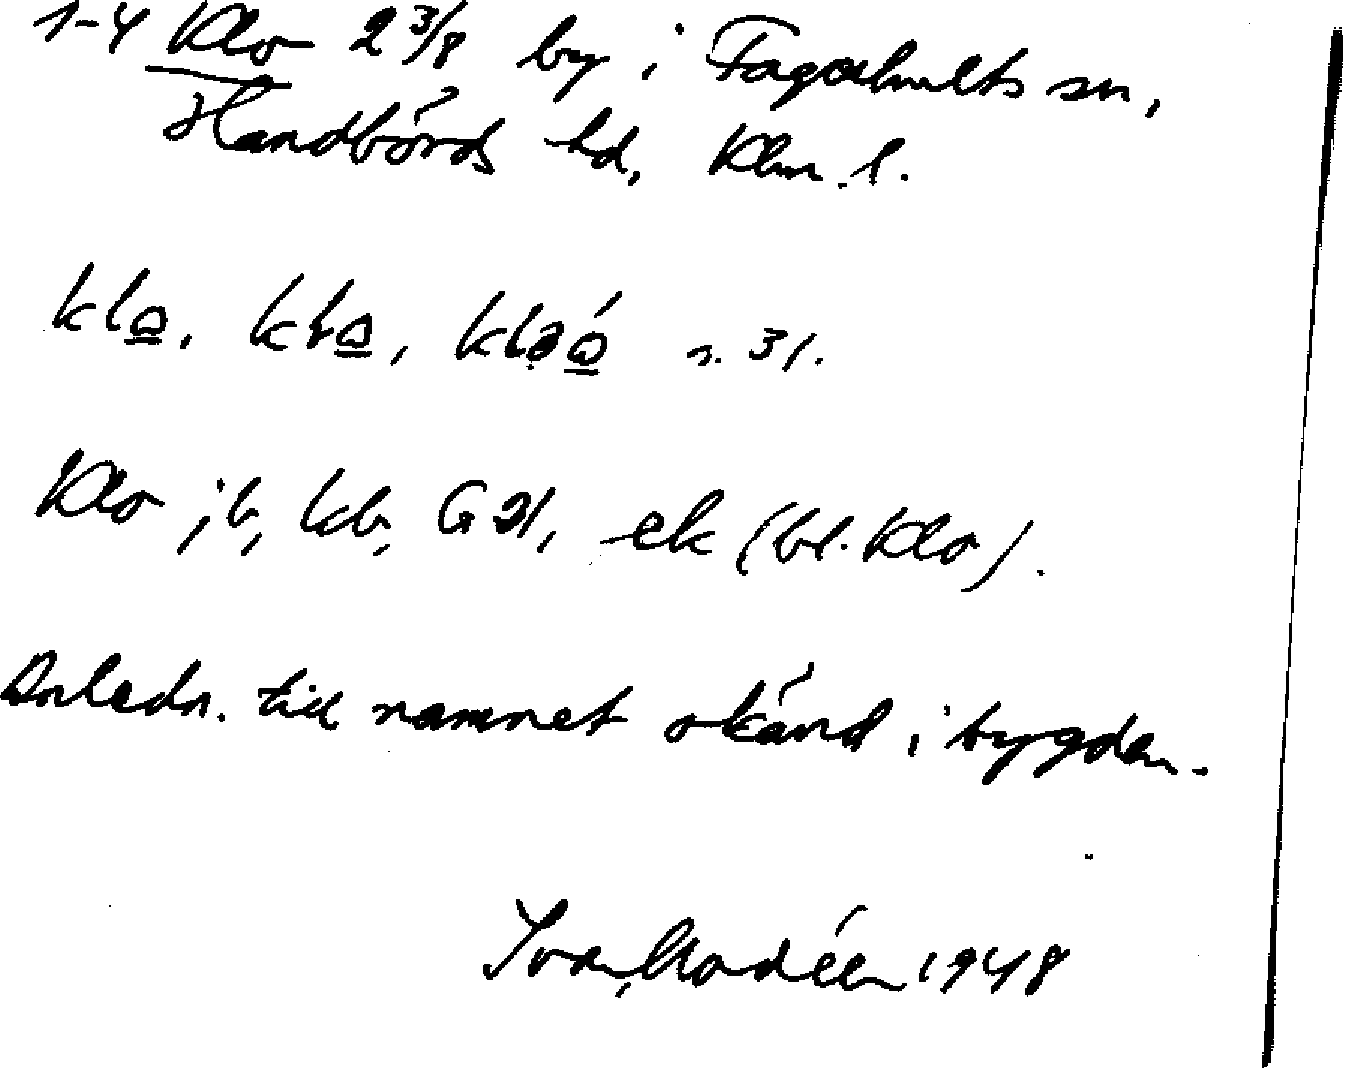 1-4 Klo 2 3/8 by i Fagerhults sn,
Handbörds hd, Klm. l.
Klo jb, kb, G 31, ek (bl. Klo).
Anledn. till namnet okänd i bygden.
Ivar Modéer 1948